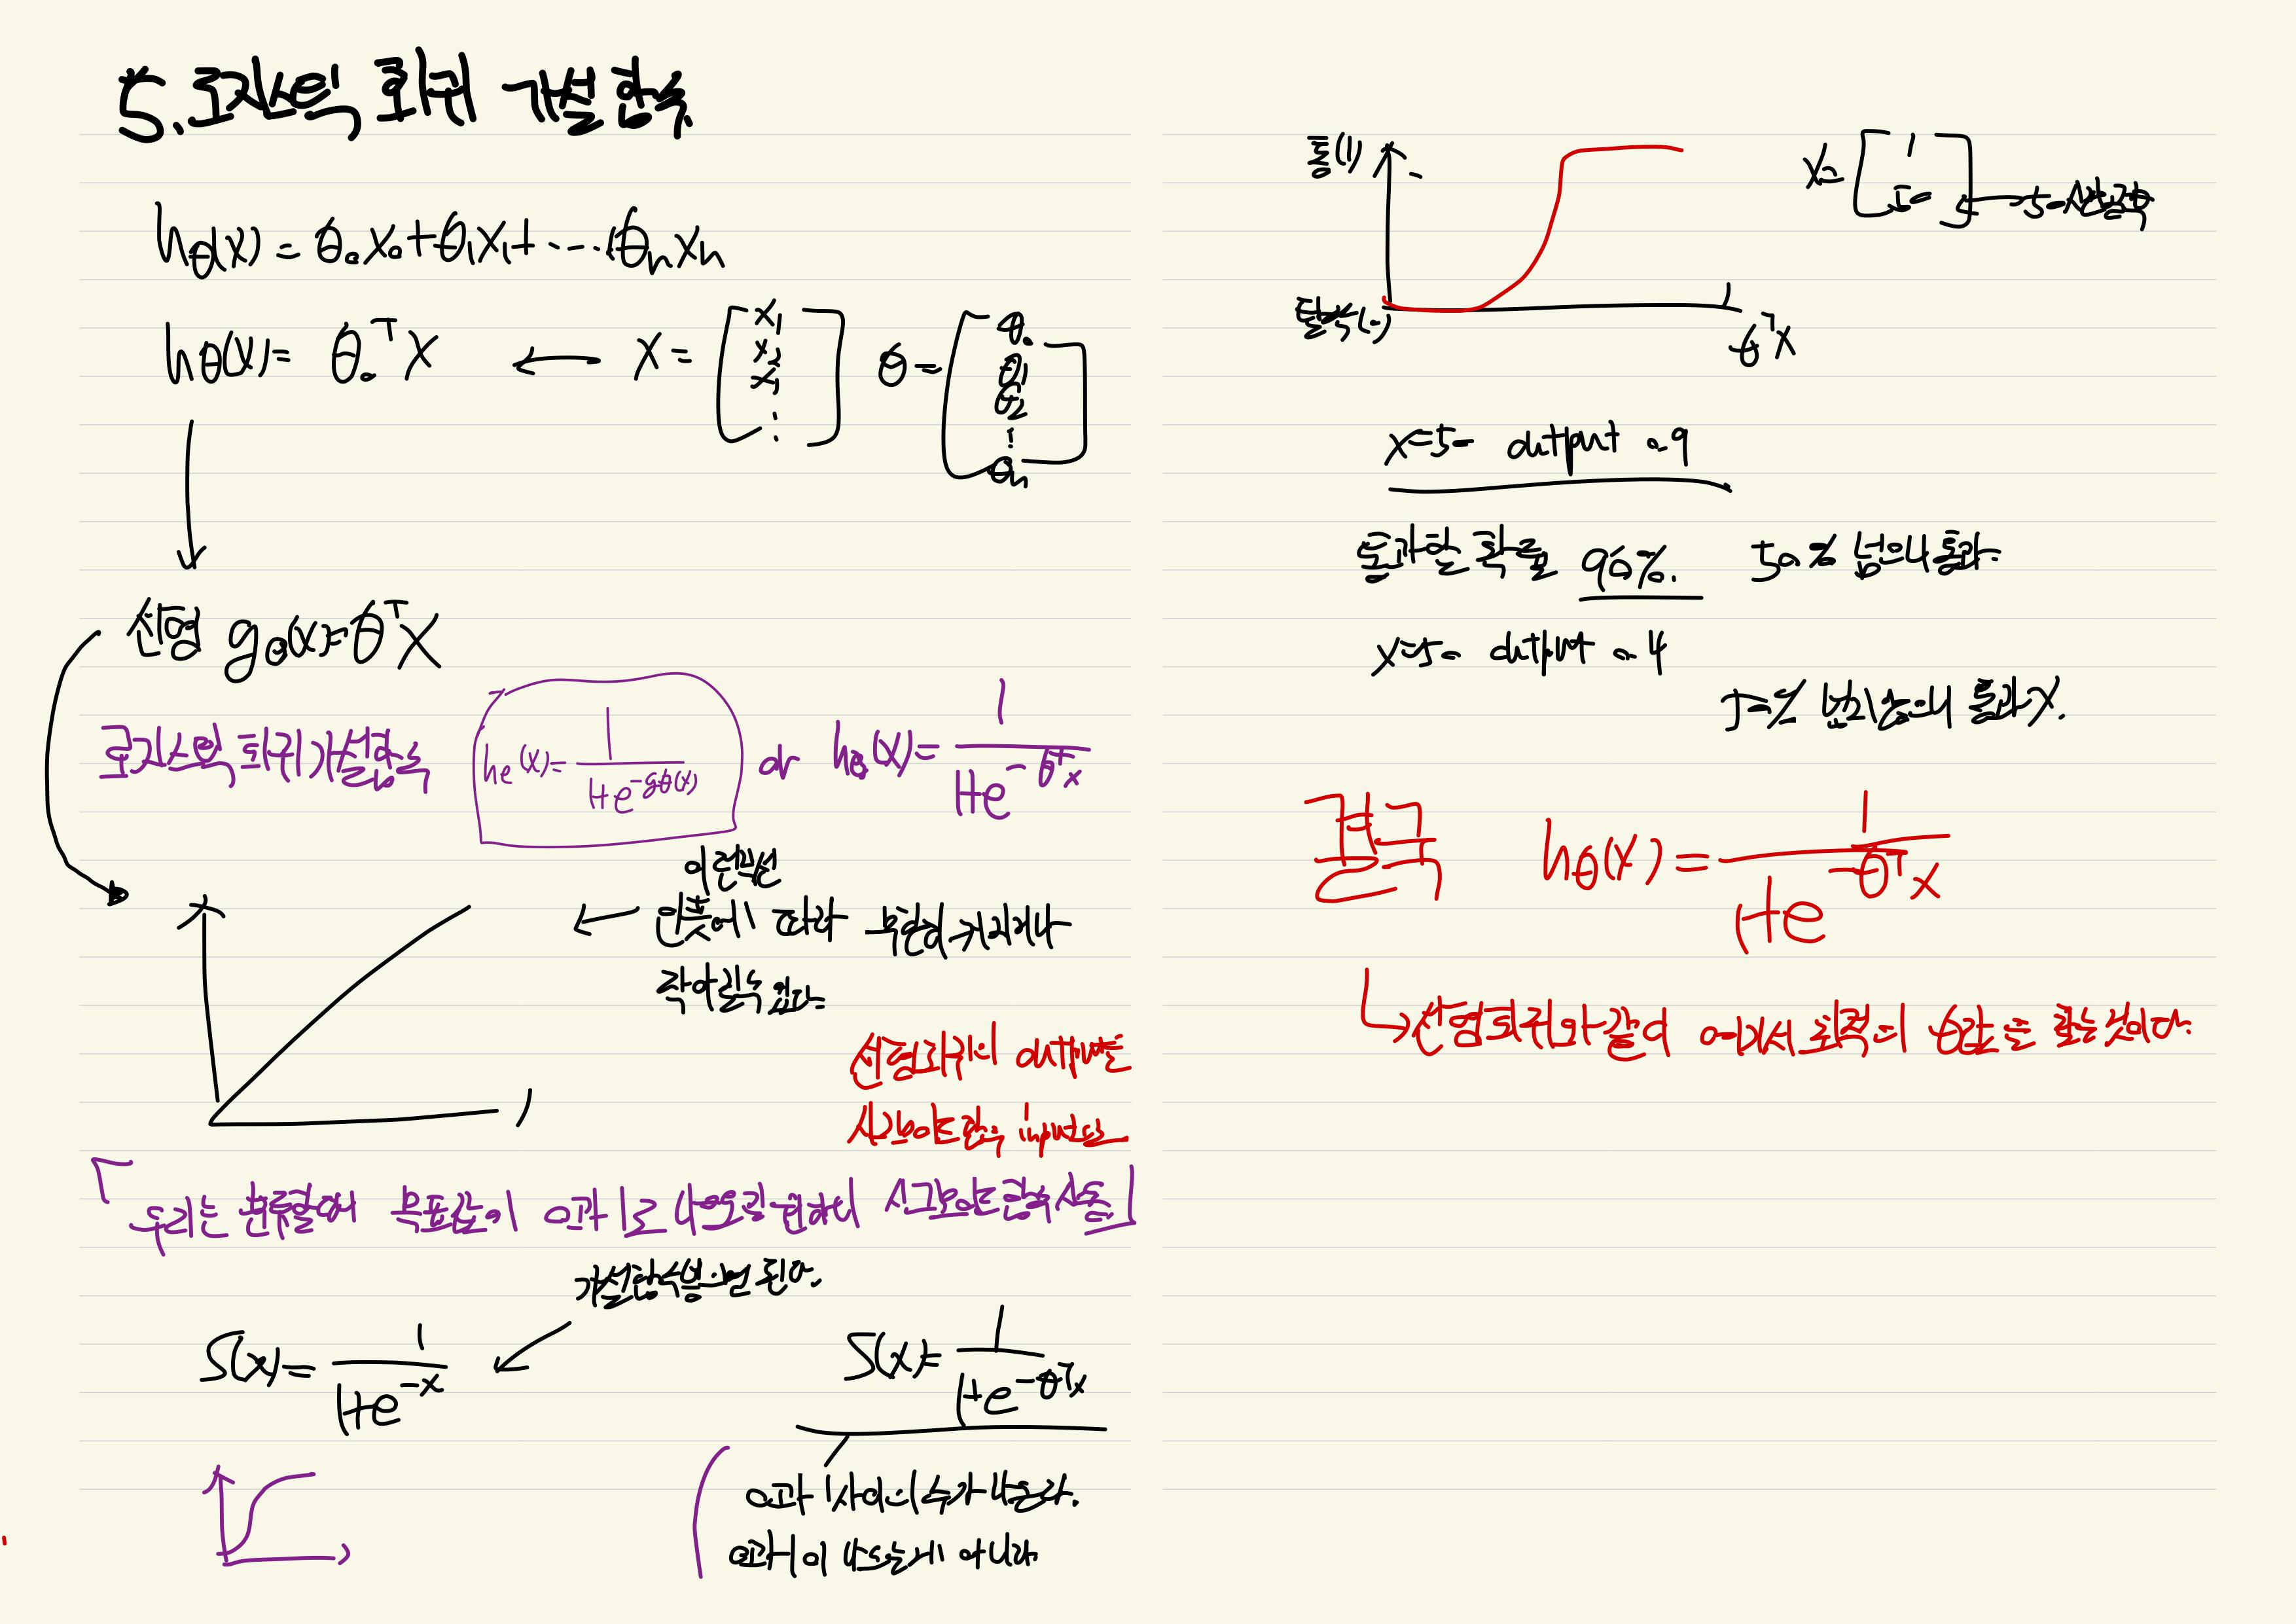 5. 로지스틱 회귀 가설 함수
hθ(x) = θ0x0 + θ1x1 + ... + θnxn
hθ(x) = θ0ᵀX ← X = [x1 x2 x3 ⋮] θ = [θ0 θ1 θ2 ⋮ θn]
선형 gθ(x) = θᵀX
로지스틱 회귀 가설함수 hθ(x) = 1 / 1+e^-gθ(x) or hθ(x) = 1 / 1+e^-θᵀx
이런 곡선
인풋에 따라 무한히 커지거나
작아질수있다
선형회귀의 output은
시그모이드 함수 input으로
「우리는 분류할때 목표값이 0과 1로 나옴 위해서 시그모이드 함수 사용」
가설함수 넣으면 된다.
S(x) = 1 / 1+e^-x
S(x) = 1 / 1+e^-θᵀx
0과 1 사이의 수가 나온다.
0과 1이 나오는게 아니라
통(1)
탈락(0)
θᵀX
X = [1 50] 50시간 공부
x=50 output 0.9
통과할 확률 90%. 50% 넘으니 통과
x=50 output 0.4
50% 안넘으니 통과X.
결국 hθ(x) = 1 / 1+e^-θᵀx
↳ 선형회귀와 같이 여기서 최적의 θ값을 찾는것이다.